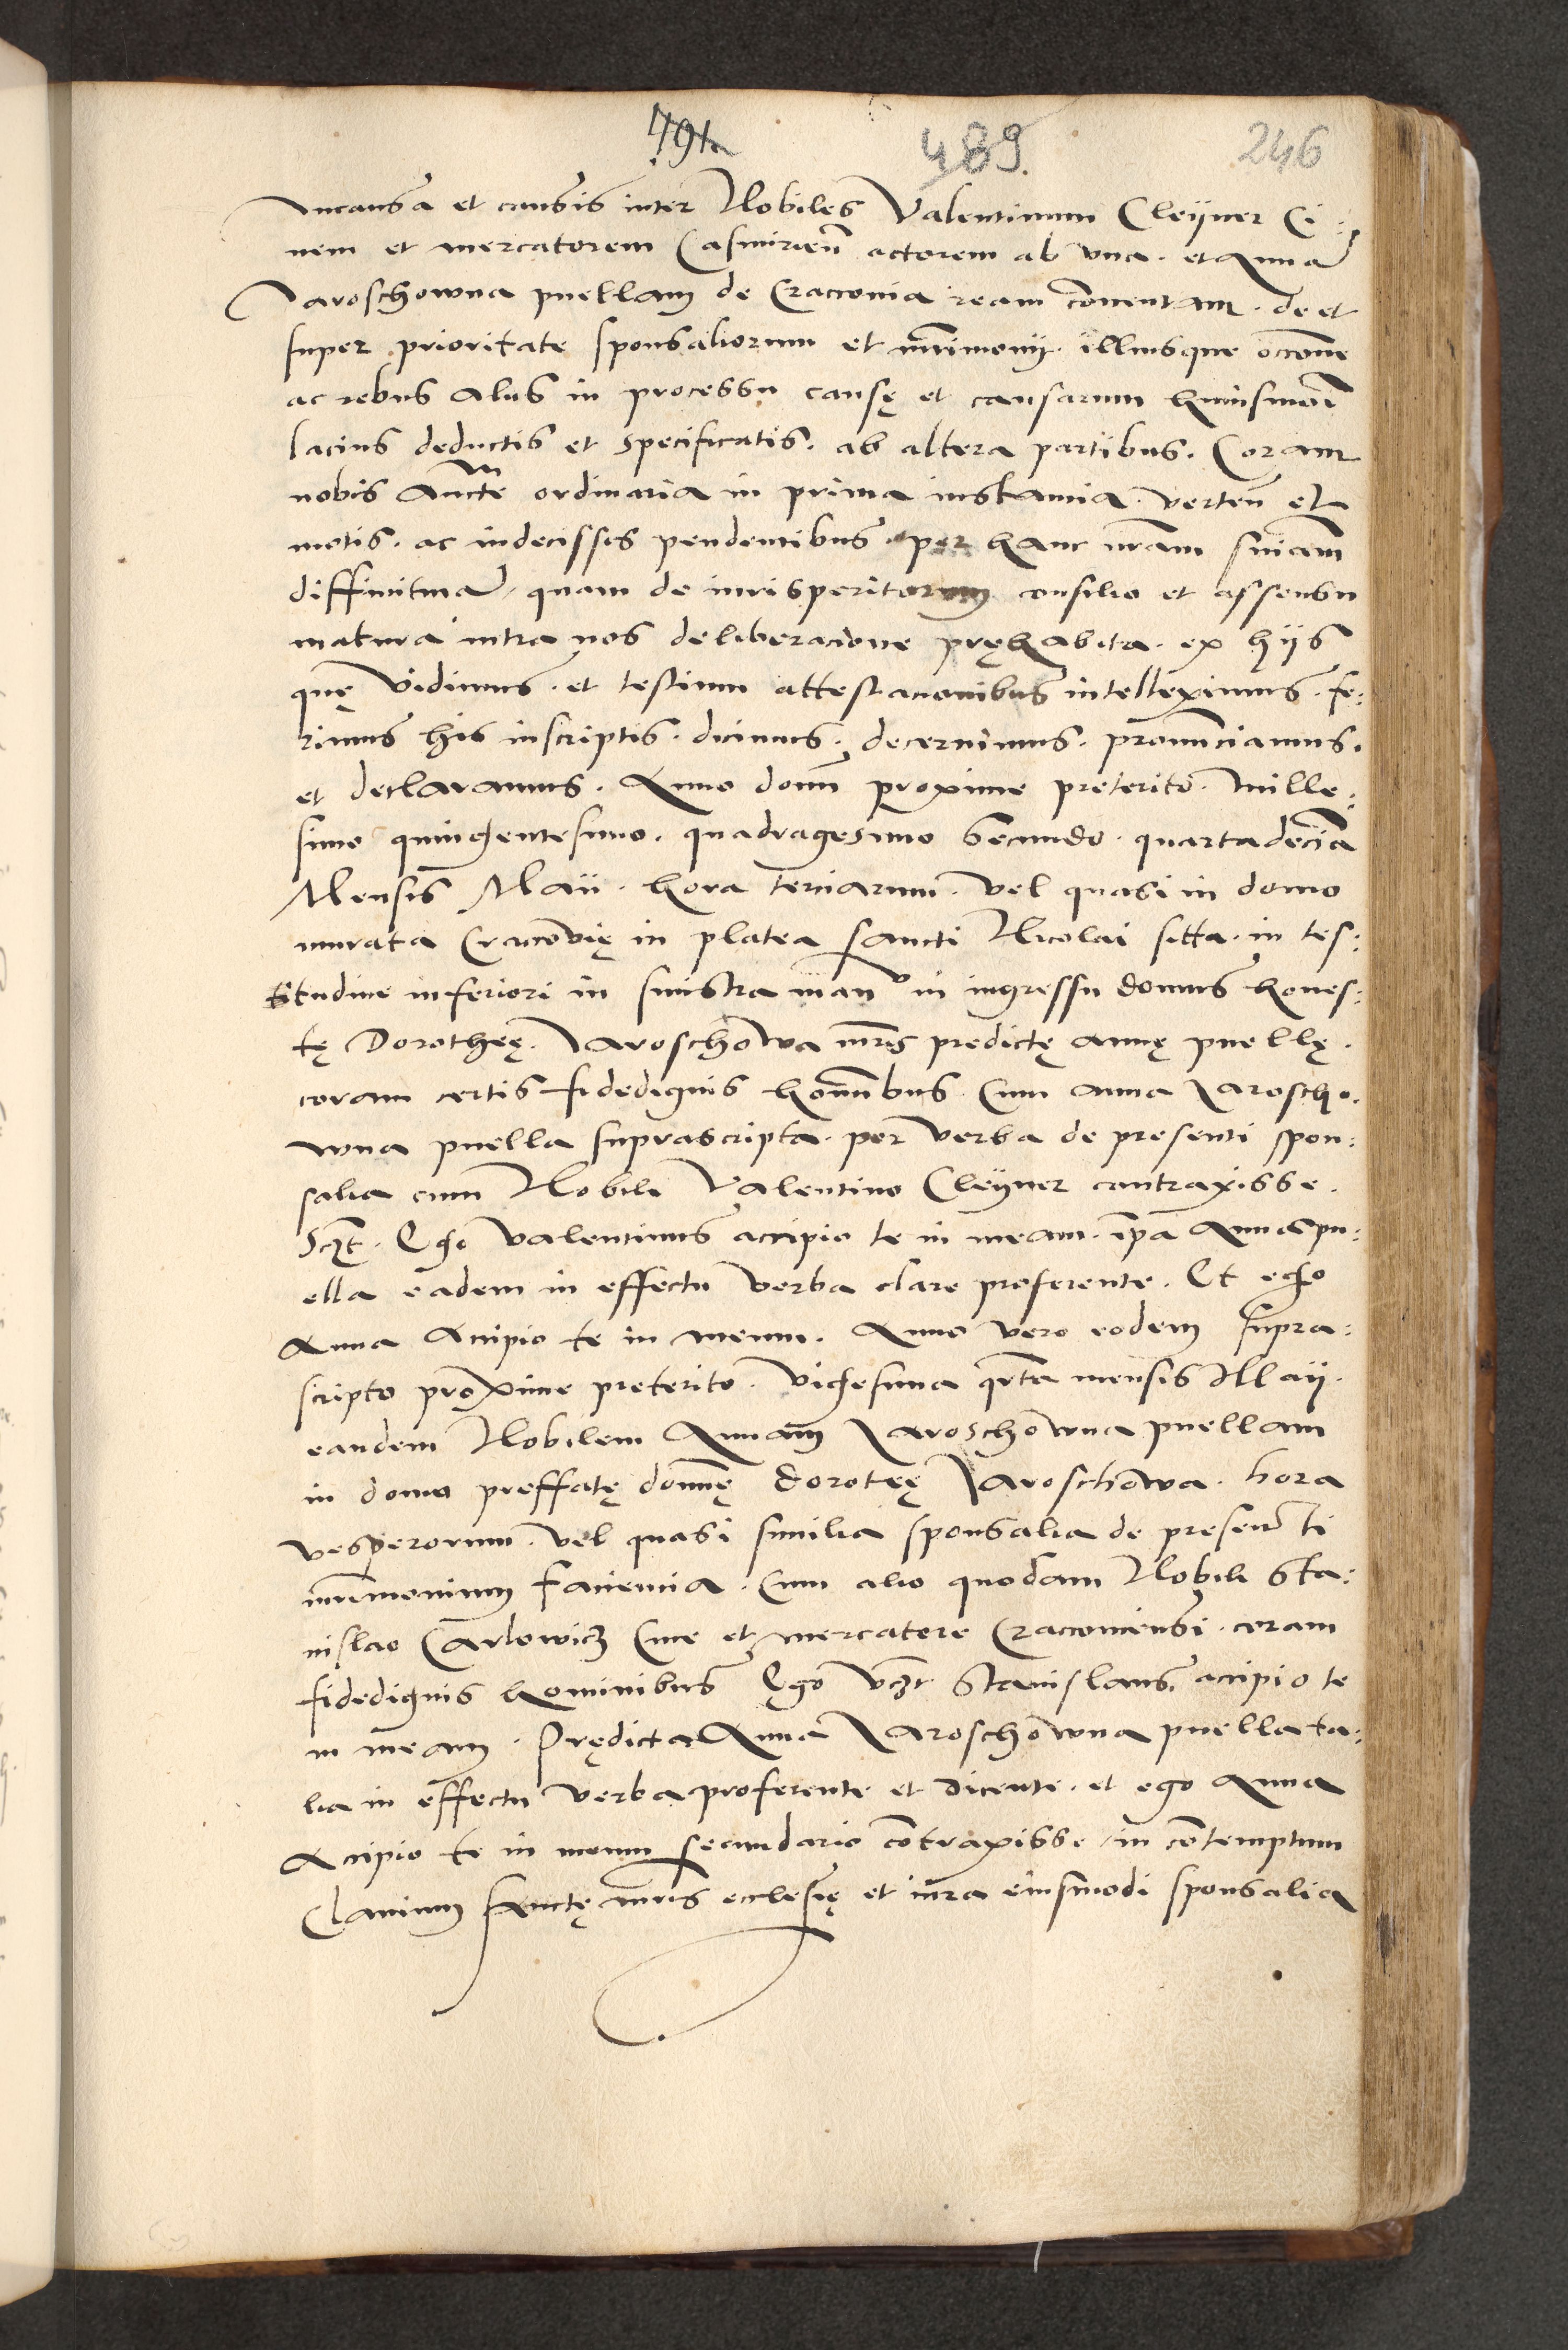 491
489.
246
In causa et causis inter Nobiles Valentinum Cleyner Ci:
uem et mercatorem Casmirien̄ actorem ab vna. et Annā
Jaroschowna puellam de Cracouia ream conuentam. de et
super prioritate sponsaliorum et mr̄imonij. illiusque occone
ac rebus alijs in processu causę et causarum huiusmōi
lacius deductis et specificatis. ab altera partibus. Coram
nobis Auctē ordinaria in prima instantia. verten̄ et
motis. ac indecissis pendentibus per hanc nrām sniam
diffinitiuā, quam de iurisperitorum consilio et assensu
matura intra nos deliberacione pręhabita. ex hijs
quę vidimus. et testium attestacionibus intelleximus. fe:
rimus his inscriptis. dicimus. decernimus. pronunciamus.
et declaramus. Anno domī proxime preterito. mille:
simo quingentesimo. quadragesimo secundo. quartadecīa
Mensis Maii. hora terciarum. vel quasi in domo
murata Cracouię in platea sancti Nicolai sitta. in tes:
titudine inferiori in sinistra manu in ingressu domus hones:
tę Dorotheę. Jaroschowa mr̄is predictę annę puellę.
coram certis fidedignis hominibus. Cum anna Jarosho.
wna puella suprascripta. per verba de presenti spon:
salia cum Nobili Valentino Cleyner contraxisse.
Scqt. Ego Valentinus accipio te in meam. ip̄a Anna pu:
ella eadem in effectu verba clare proferente. Et ego
Anna Accipio te in meum. Anno vero eodem supra:
scripto proxime preterito. vigesima qrta mensis Maij.
eandem Nobilem Annam Jaroschowna puellam
in domo preffatę domnę doroteę Jaroschowa. hora
vesperorum. vel quasi similia sponsalia de presenti
mr̄imonium faciencia. Cum alio quodam Nobili Sta:
nislao Carlowicz Ciue et mercatore Cracouiensi. coram
fidedignis hominibus Ego vczt Stanislaus accipio te
in meam. Prędicta Anna Jaroschowna puella ta:
lia in effectu verba proferente et dicente. et ego Anna
Accipio te in meum secundario contraxisse, in contemptum
Clauium sanctę mr̄is ecclesię et iura eiusmodi sponsalia